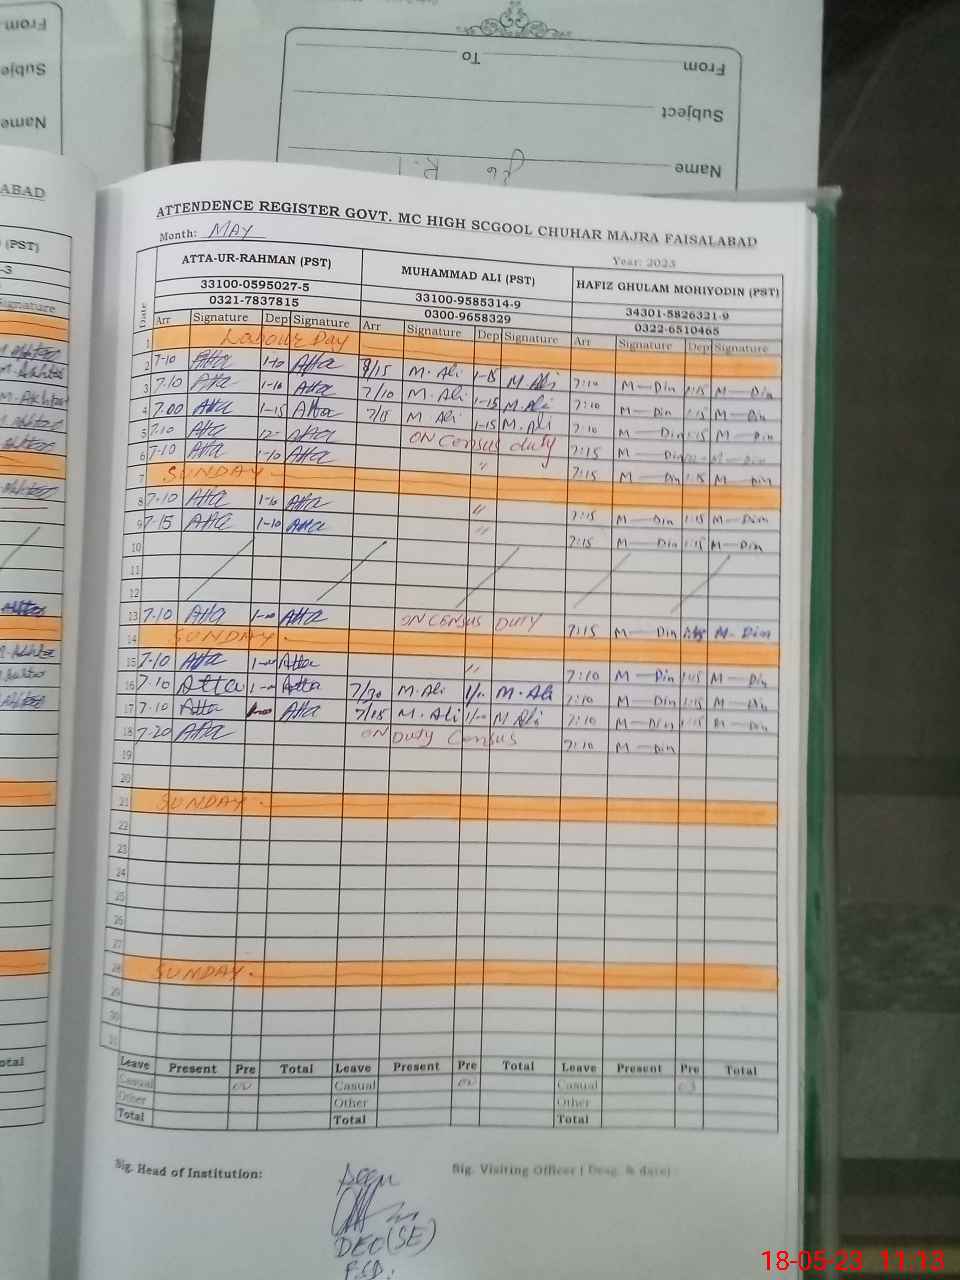 From
To
Subject
Name
From
Subject
Name
ABAD
(PST)
-3
Signature
ATTENDENCE REGISTER GOVT. MC HIGH SCGOOL CHUHAR MAJRA FAISALABAD
Month: MAY
Year: 2023
ATTA-UR-RAHMAN (PST) MUHAMMAD ALI (PST) HAFIZ GHULAM MOHIYODIN (PST)
33100-0595027-5 33100-9585314-9 34301-5826321-9
0321-7837815 0300-9658329 0322-6510465
Date Arr Signature Dep Signature Arr Signature Dep Signature Arr Signature Dep Signature
1 Labour Day
2 7-10 Atta 1-10 Atta 8/15 M. Ali 1-15 M. Ali 7:10 M-Din 1:15 M-Din
3 7.10 Atta 1-10 Atta 7/10 M. Ali 1-15 M. Ali 7:10 M-Din 1:15 M-Din
4 7.00 Atta 1-15 Atta 7/15 M Ali 1-15 M. Ali 7:10 M-Din 1:15 M-Din
5 7.10 Atta 12- Atta ON Census duty 7:15 M-Din M-Din
6 7-10 Atta 1-10 Atta " 7:15 M-Din 1:15 M-Din
7 SUNDAY
8 7-10 Atta 1-10 Atta " 7:15 M-Din 1:15 M-Din
9 7-15 Atta 1-10 Atta " 7:15 M-Din 1:15 M-Din
10
11
12
13 7-10 Atta Atta ON CENSUS DUTY 7:15 M-Din M-Din
14 SUNDAY
15 7-10 Atta Atta " 7:10 M-Din 1:15 M-Din
16 7-10 Atta Atta 7/30 M. Ali M. Ali 7:10 M-Din 1:15 M-Din
17 7-10 Atta Atta 7/15 M. Ali M Ali 7:10 M-Din 1:15 M-Din
18 7-20 Atta ON Duty Census 7:10 M-Din
19
20
21 SUNDAY
22
23
24
25
26
27
28 SUNDAY
29
30
31
Leave Present Pre Total Leave Present Pre Total Leave Present Pre Total
Casual Casual Casual 03
Other Other Other
Total Total Total
otal
Sig. Head of Institution: Sig. Visiting Officer ( Desg. & date)
DEO(SE)
FSD.
18-05-23 11:13